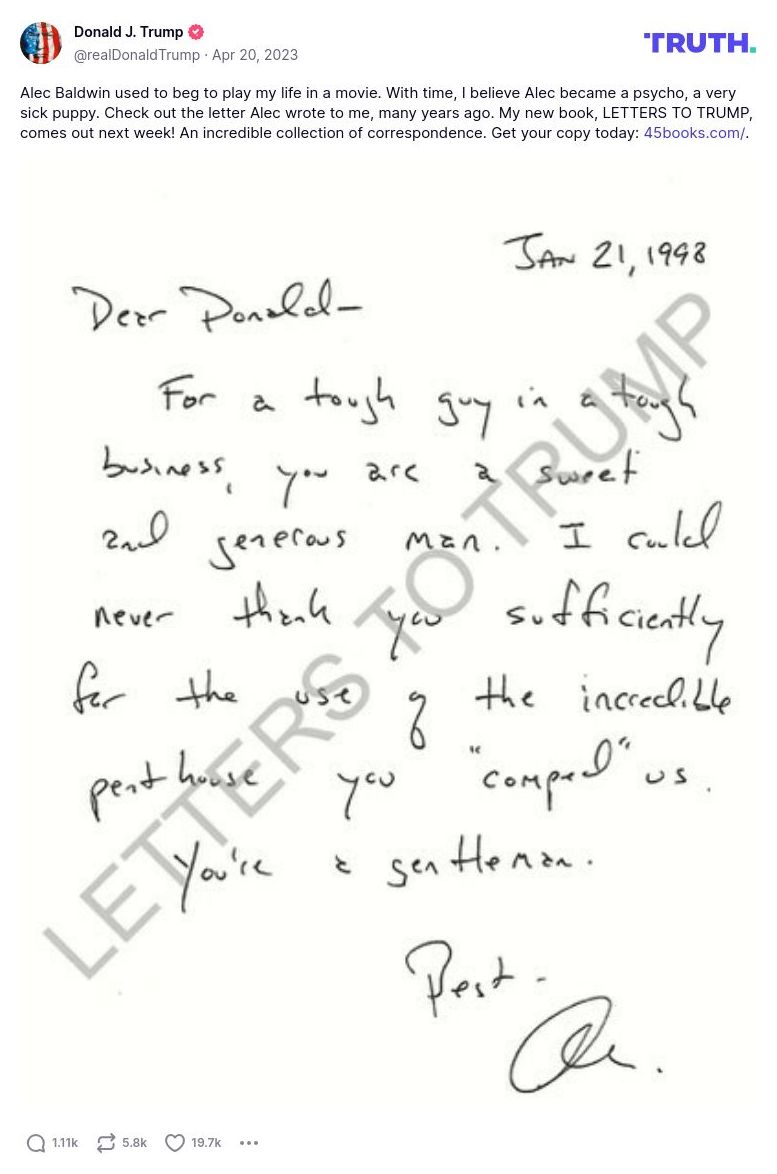 Donald J. Trump
@realDonaldTrump · Apr 20, 2023
TRUTH.
Alec Baldwin used to beg to play my life in a movie. With time, I believe Alec became a psycho, a very
sick puppy. Check out the letter Alec wrote to me, many years ago. My new book, LETTERS TO TRUMP,
comes out next week! An incredible collection of correspondence. Get your copy today: 45books.com/.
JAN 21, 1998
Dear Donald-
For a tough guy in a tough
business, you are a sweet
and generous man. I could
never thank you sufficiently
for the use of the incredible
penthouse you "comped" us.
You're a gentleman.
Best -
LETTERS TO TRUMP
1.11k 5.8k 19.7k